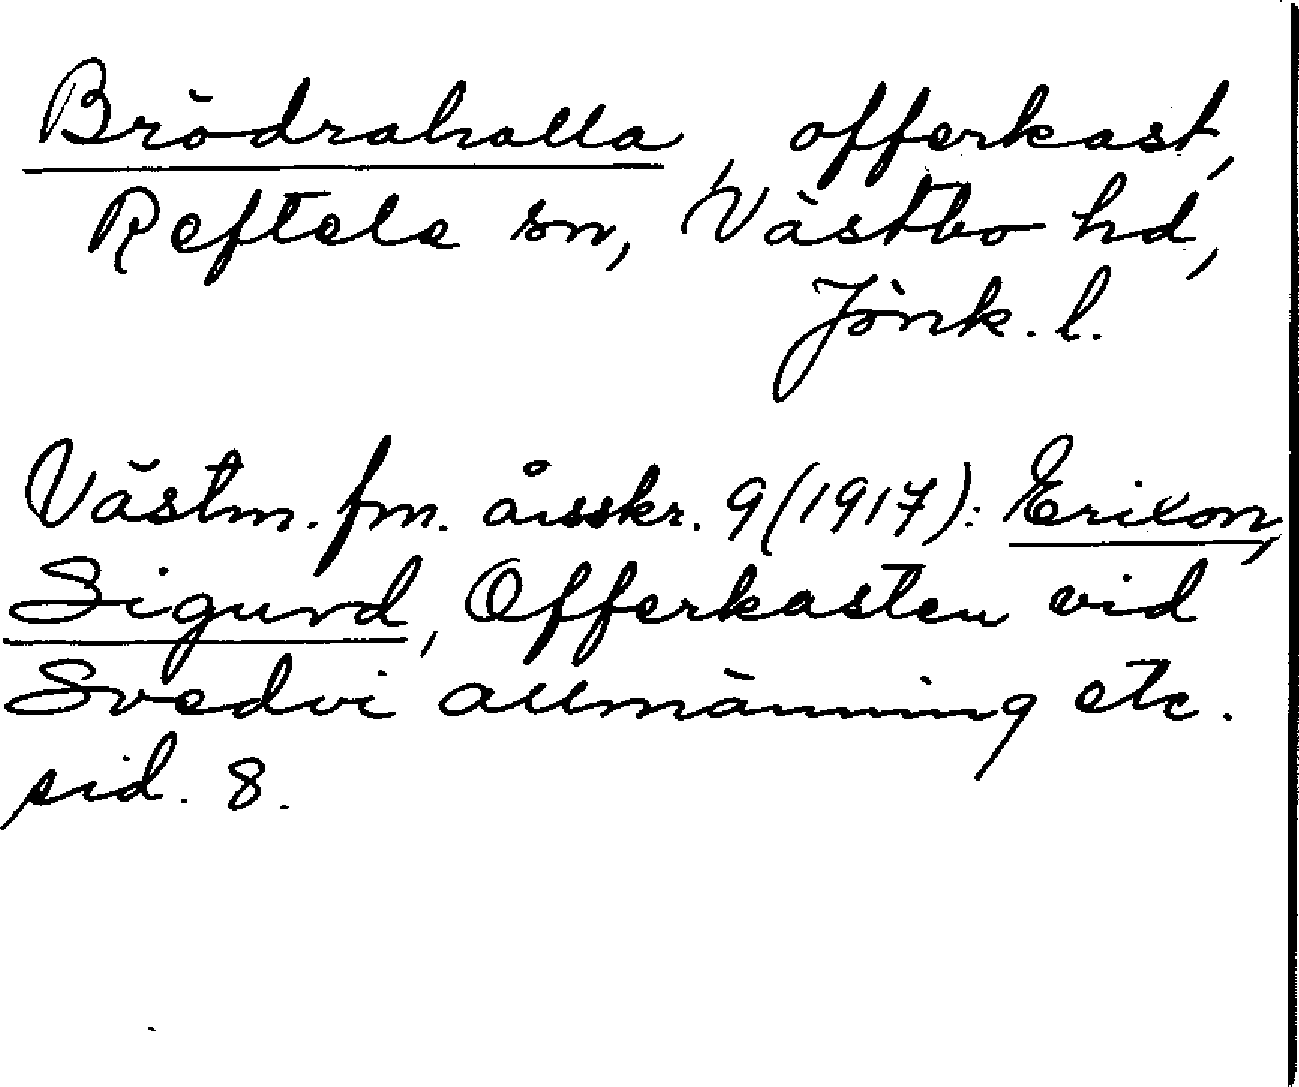 Brödrahalla, offerkast,
Reftele sn, Västbo hd,
Jönk. l.
Västm. fm. årsskr. 9 (1917): Erixon,
Sigurd, Offerkasten vid
Svedvi allmänning etc.
sid. 8.